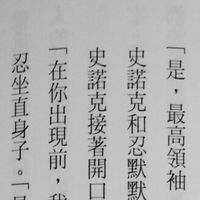 「是，最高領袖
史諾克和忍默默
史諾克接著開口
「在你出現前，我
忍坐直身子。「